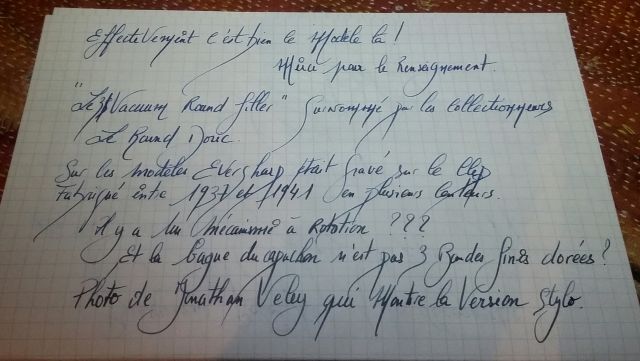 Effectivement c'est bien le Modèle là !
Merci pour le Renseignement.
"Le Vacuum Round filler" Surnommé par les collectionneurs
Le Round Doric.
Sur les modèles Eversharp était gravé sur le clip
Fabriqué entre 1937 et 1941 en plusieurs couleurs.
il y a un mécanisme à Rotation ???
Et la bague du capuchon n'est pas 3 Bandes fines dorées ?
Photo de Jonathan Veley qui Montre la Version stylo.